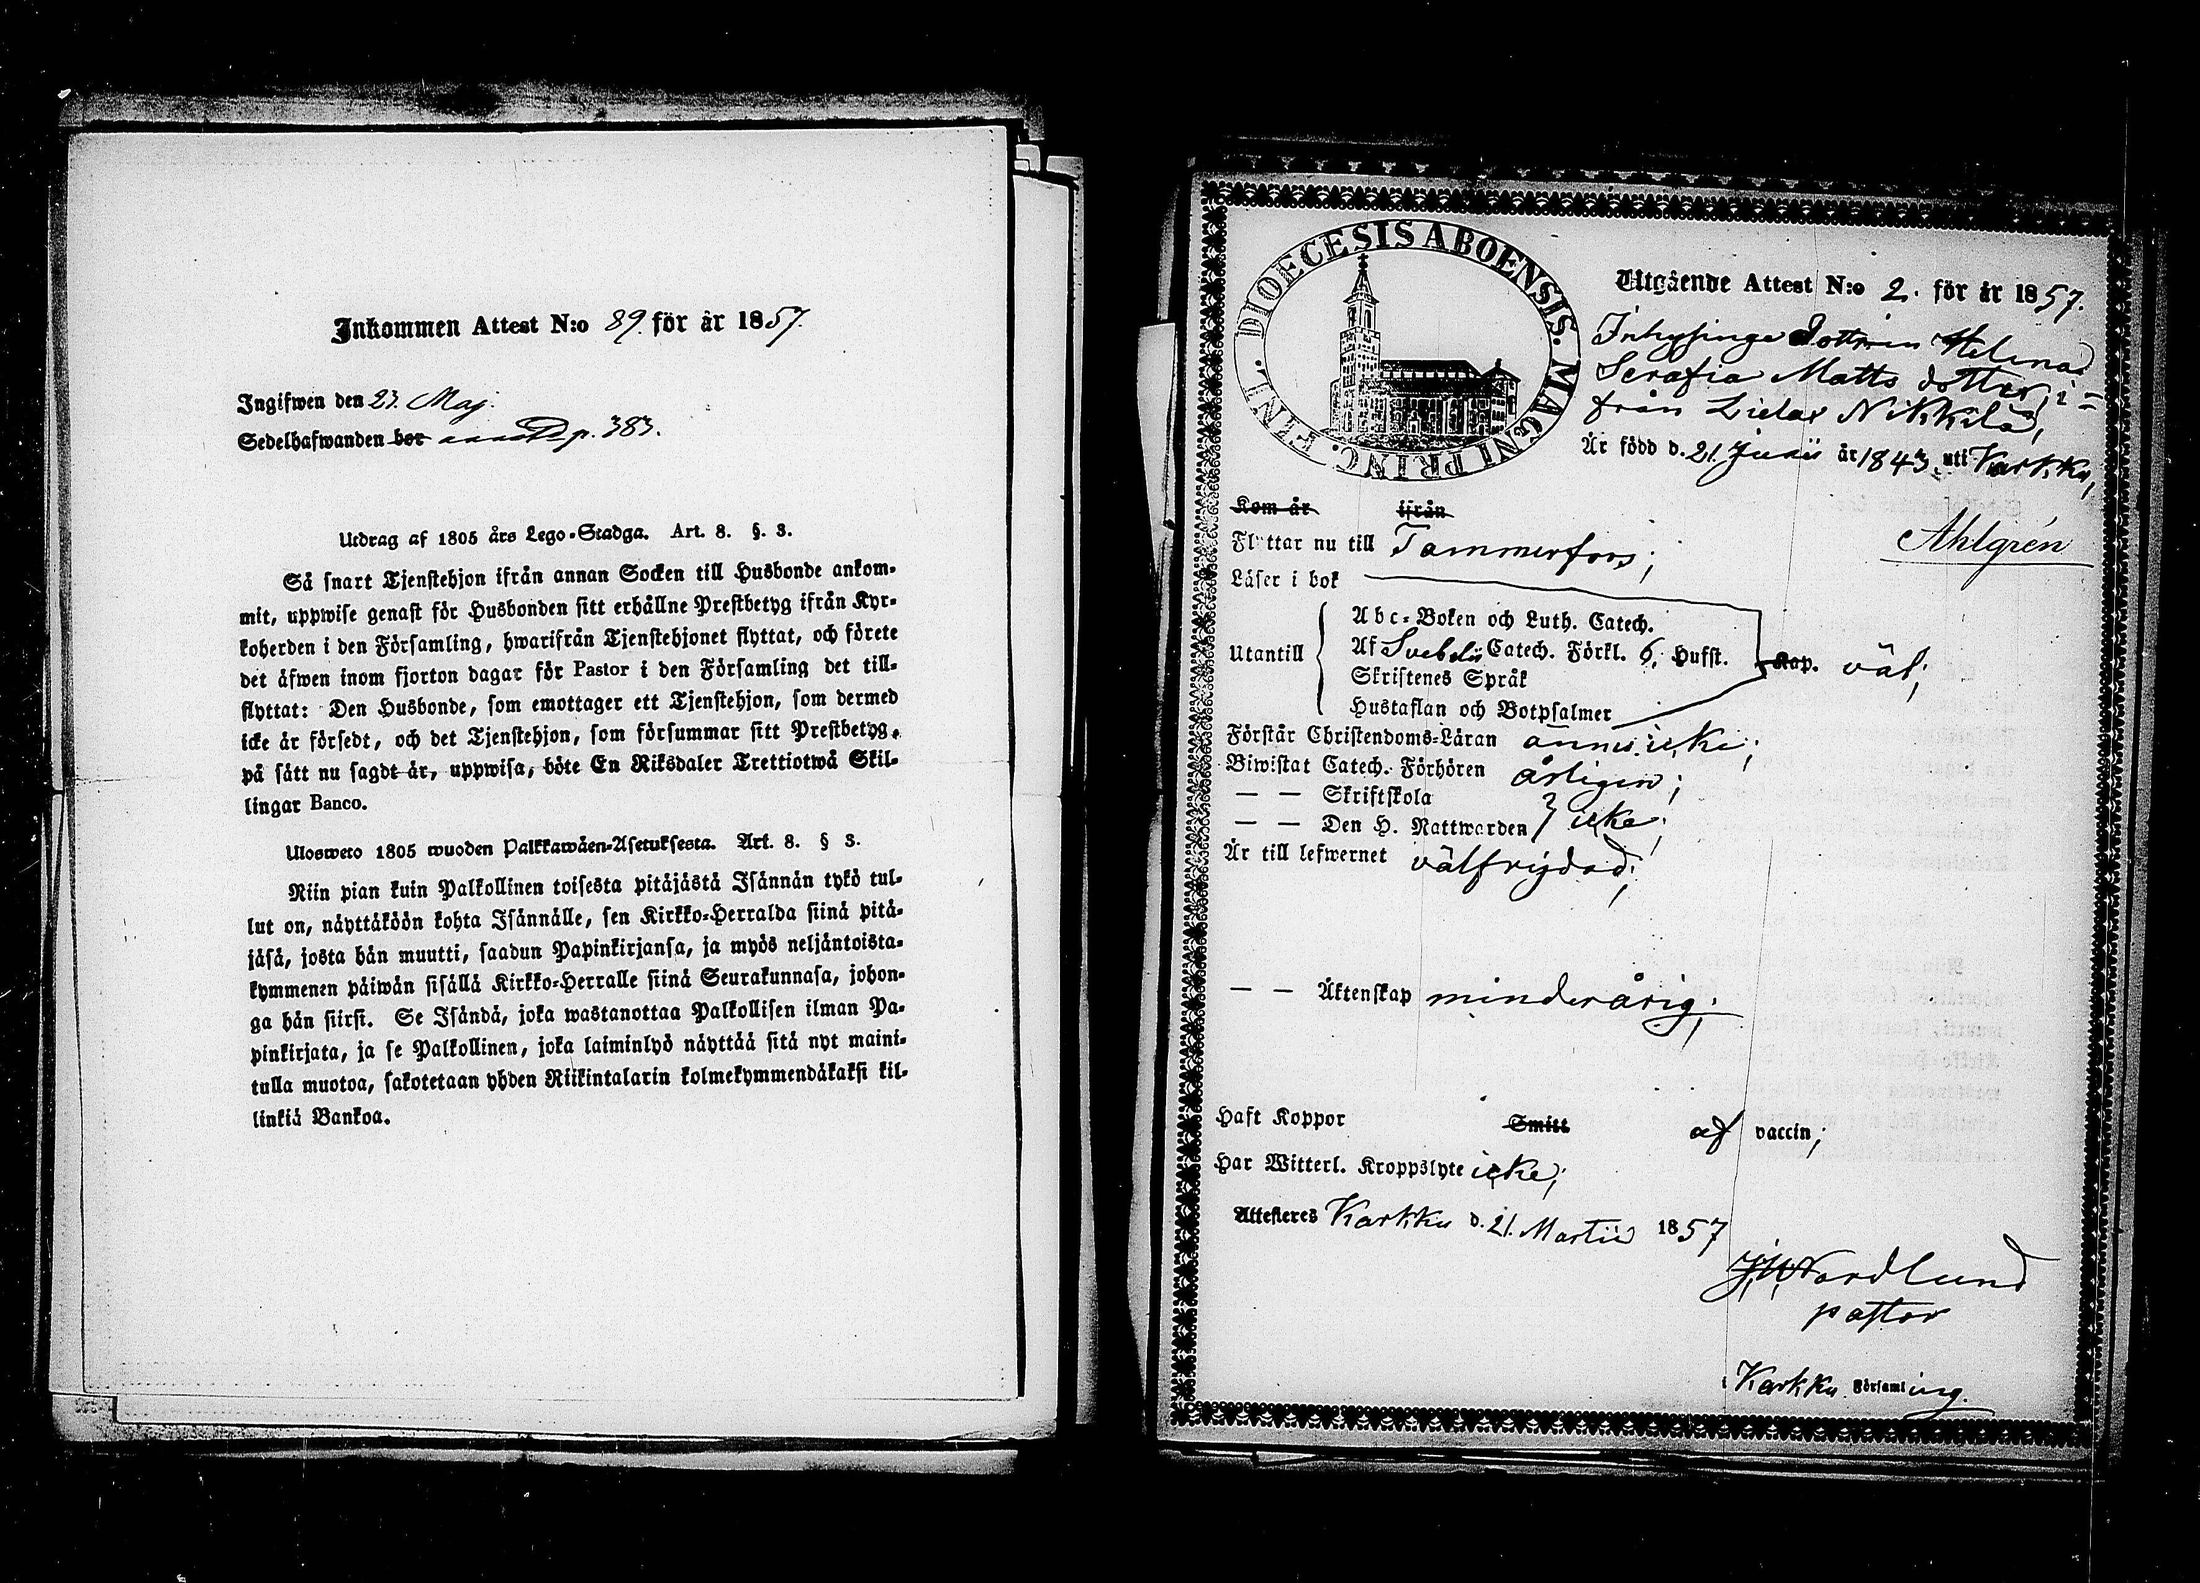 Inkommen Attest N:o 89. för år 1857.
Ingifwen den 23. Maj.
Sedelhafwanden bor p. 383.
Utdrag af 1805 års Lego-Stadga. Art. 8. §. 3.
Så snart Tjenstehjon ifrån annan Socken till Husbonde ankom-
mit, uppwise genast för Husbonden sitt erhållne Prestbetyg ifrån Kyr-
koherden i den Församling, hwarifrån Tjenstehjonet flyttat, och förete
det äfwen inom fjorton dagar för Pastor i den Församling det till-
flyttat: Den Husbonde, som emottager ett Tjenstehjon, som dermed
icke är försedt, och det Tjenstehjon, som försummar sitt Prestbetyg,
på sätt nu sagdt är, uppwisa, böte En Riksdaler Trettiotwå Skil-
lingar Banco.
Ulosweto 1805 wuoden Palkkawäen-Asetuksesta. Art. 8. § 3.
Niin pian kuin Palkollinen toisesta pitäjästä Isännän tykö tul-
lut on, näyttäköön kohta Isännälle, sen Kirkko-Herralda siinä pitä-
jäsä, josta hän muutti, saadun Papinkirjansa, ja myös neljäntoista-
kymmenen päiwän sisällä Kirkko-Herralle siinä Seurakunnasa, johon-
ga hän siirsi. Se Isändä, joka wastanottaa Palkollisen ilman Pa-
pinkirjata, ja se Palkollinen, joka laiminlyö näyttää sitä nyt maini-
tulla muotoa, sakotetaan yhden Riikintalarin kolmekymmendäkaksi kil-
linkiä Bankoa.
DIOECESIS ABOENSIS. MAGNI PRINC. FINL.
Utgående Attest N:o 2. för år 1857.
Inhysinge Dottren Helena
Serafia Matts dotter, i-
från Lielax Nikkilä,
Är född d. 21. Junii år 1843. uti Karkku,
Kom år ifrån
Ahlgrén
Flyttar nu till Tammerfors;
Läser i bok
Abc-Boken och Luth. Catech.
Utantill Af Svebelii Catech. Förkl. 6. Hufst. Kap. väl;
Skriftenes Språk
Hustaflan och Botpsalmer
Förstår Christendoms-Läran ännu icke;
Biwistat Catech. Förhören årligen;
— — Skriftskola
— — Den H. Nattwarden } icke;
Är till lefwernet välfrejdad;
— — Äktenskap minderårig;
Haft Koppor Smitt af vaccin;
Har Witterl. Kroppslyte icke;
Attesteras Karkku d. 21. Martii 1857
J.W. Nordlund
pastor
i Karkku Församling.